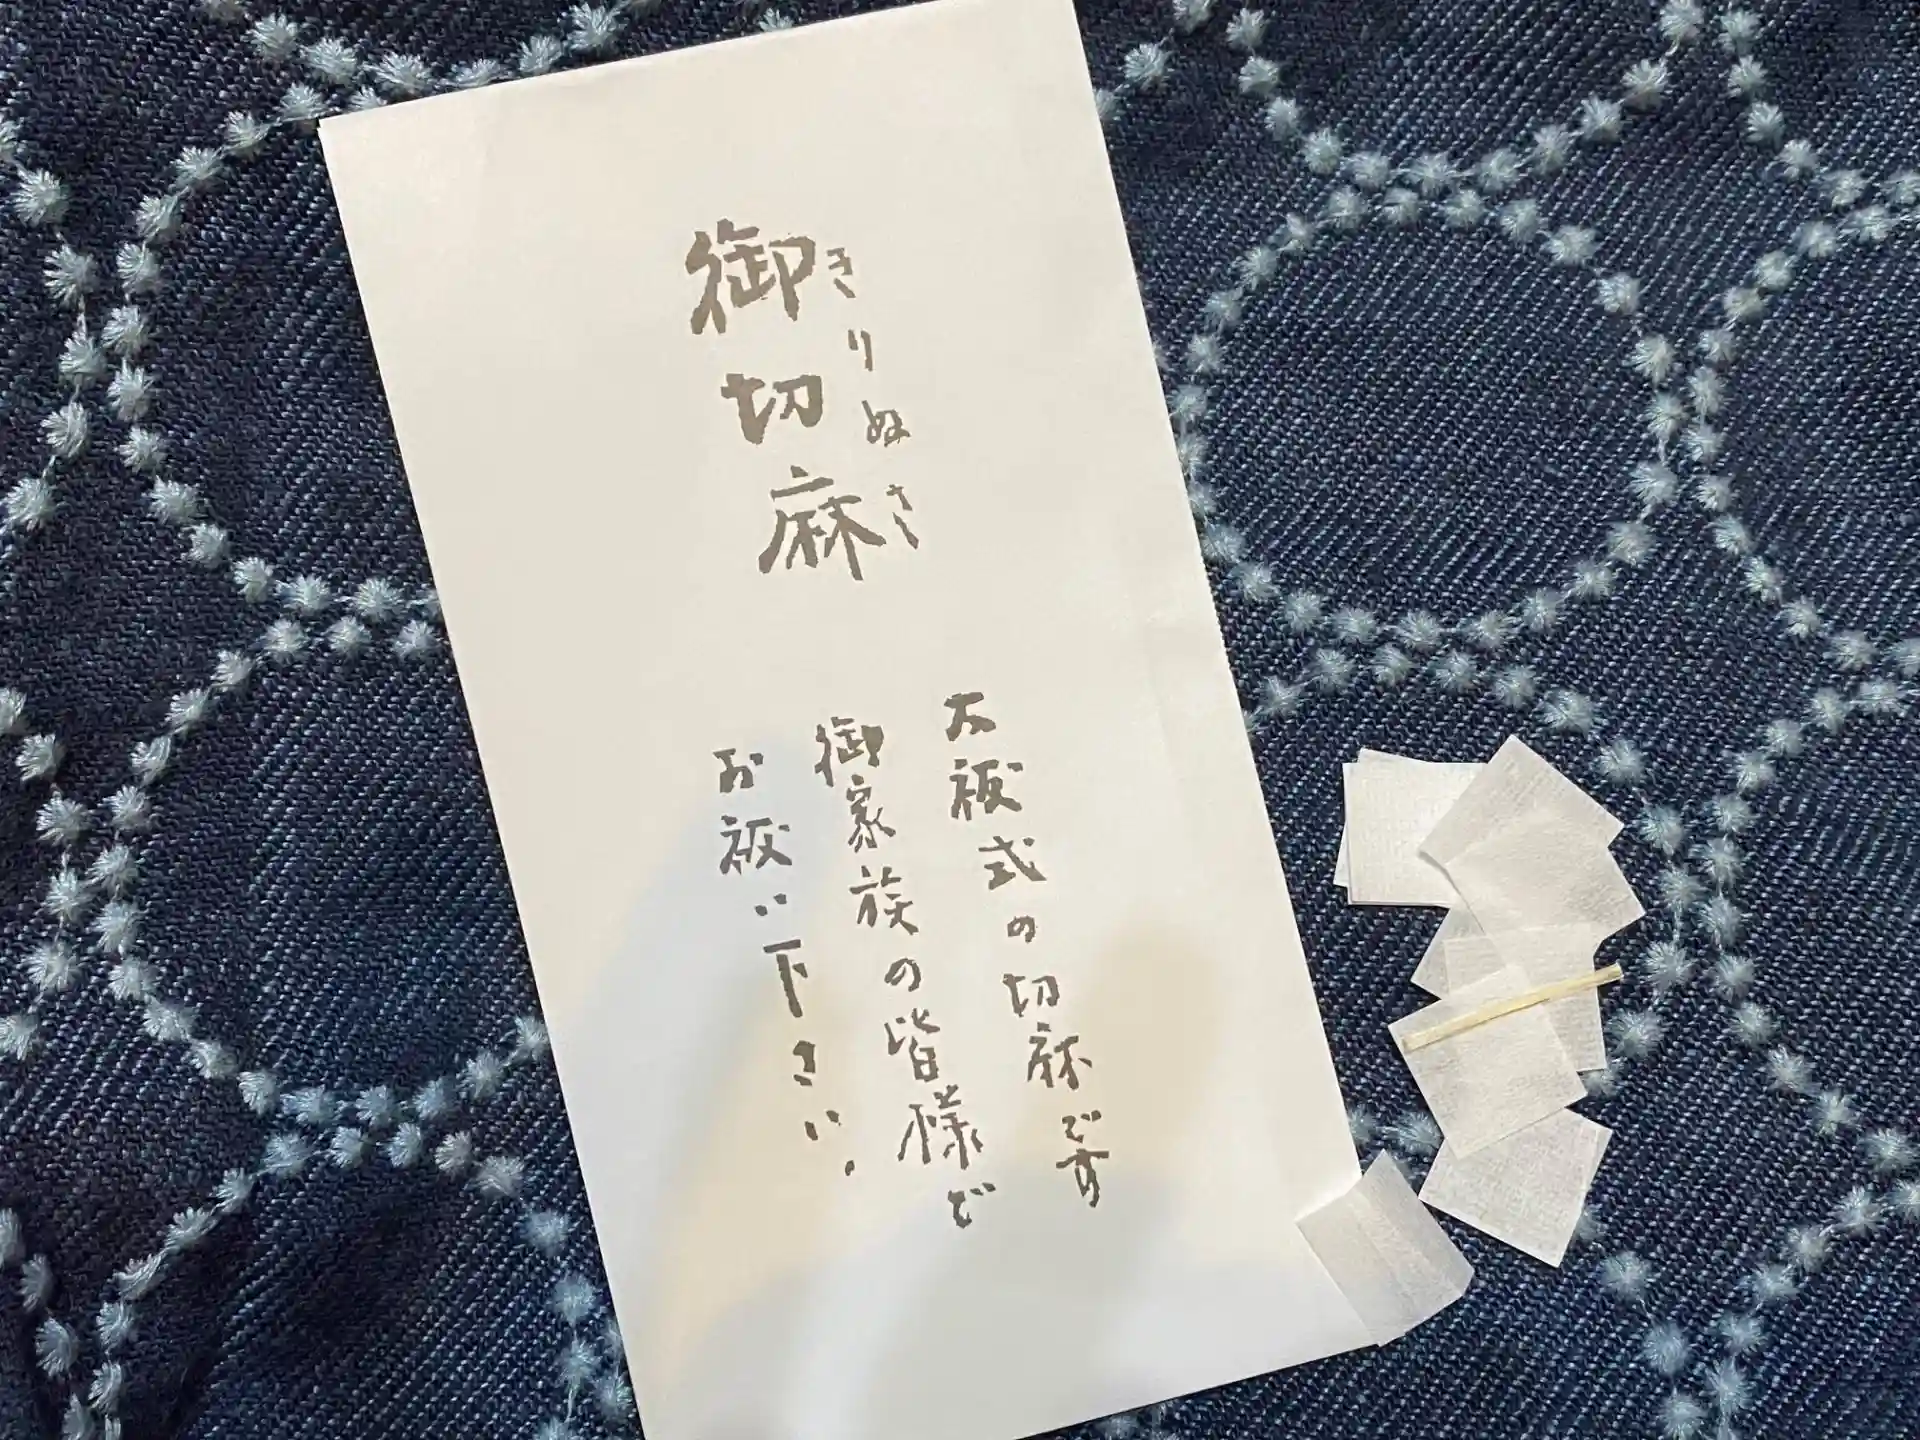 御切麻
きりぬさ
大祓式の切麻です
御家族の皆様で
お祓い下さい。